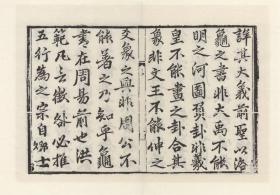 詳其大義前聖以洛
龜之書非大禹不能
明之河圖貢卦非羲
皇不能畫之卦合其
象非文王不能伸之
爻象之興非周公不
能著之乃知乎龜
書在周易前也洪
範凡云徵咎必推
五行為之宗自卿士